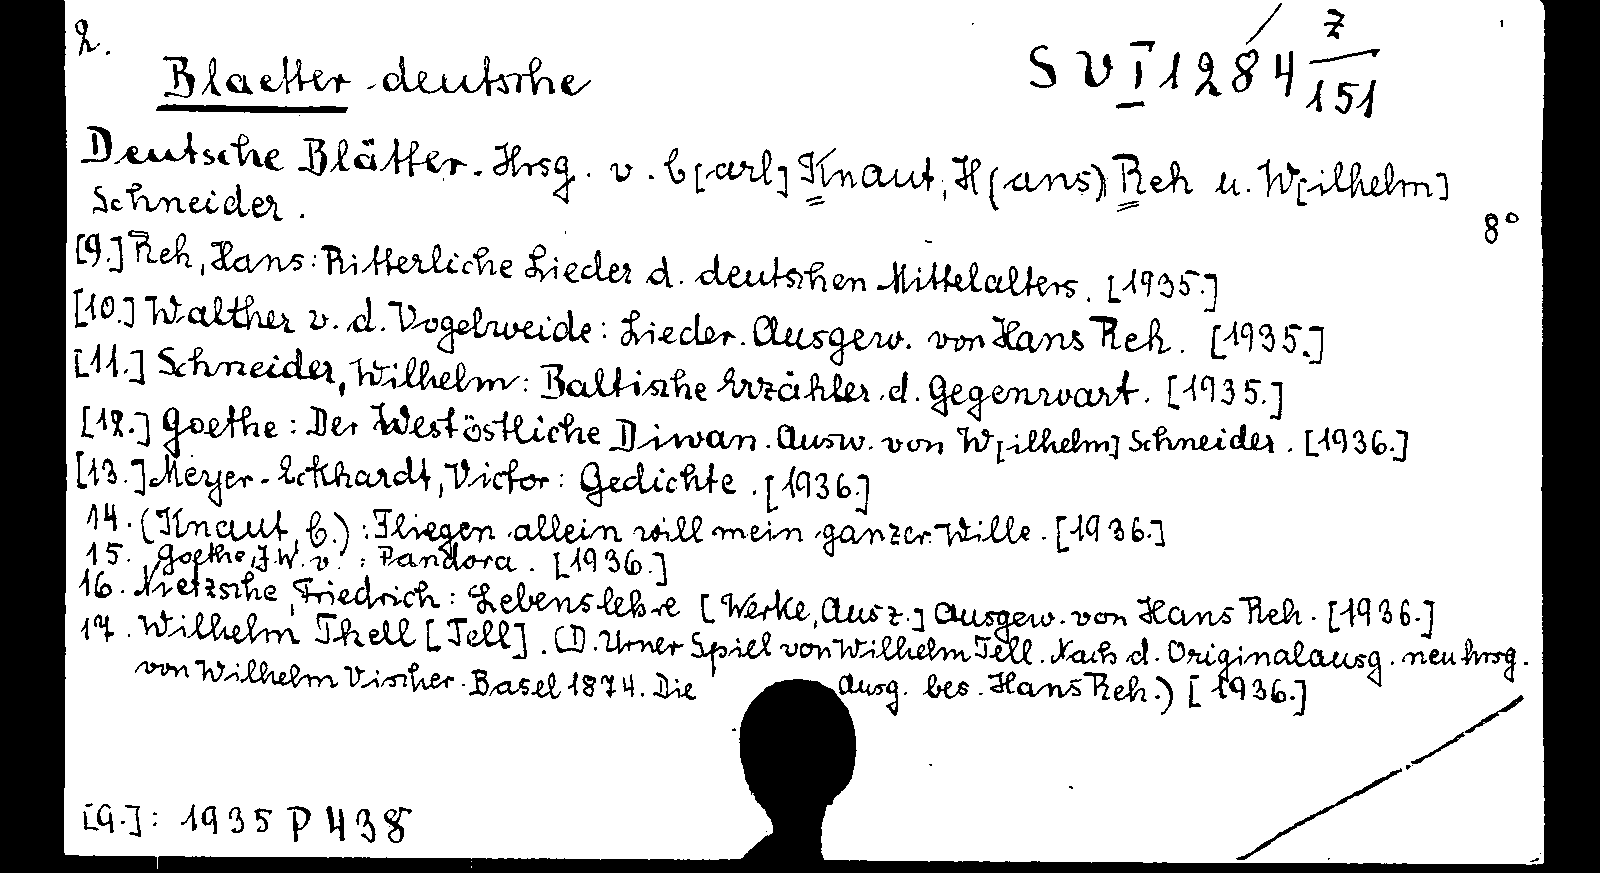 2.
Blaetter deutsche
S VI 1284 z/151
Deutsche Blätter. Hrsg. v. C[arl] Knaut, H(ans) Reh u. W[ilhelm]
Schneider.
8°
[9.] Reh, Hans: Ritterliche Lieder d. deutschen Mittelalters. [1935.]
[10.] Walther v. d. Vogelweide: Lieder. Ausgew. von Hans Reh. [1935.]
[11.] Schneider, Wilhelm: Baltische Erzähler d. Gegenwart. [1935.]
[12.] Goethe: Der Westöstliche Diwan. Ausw. von W[ilhelm] Schneider. [1936.]
[13.] Meyer-Eckhardt, Victor: Gedichte. [1936.]
14. (Knaut, C.): Fliegen allein will mein ganzer Wille. [1936.]
15. Goethe, J. W. v.: Pandora. [1936.]
16. Nietzsche, Friedrich: Lebenslehre [Werke, Ausz.] Ausgew. von Hans Reh. [1936.]
17. Wilhelm Thell [Tell]. (D. Urner Spiel von Wilhelm Tell. Nach d. Originalausg. neu hrsg.
von Wilhelm Vischer. Basel 1874. Die Ausg. bes. Hans Reh.) [1936.]
[9.]: 1935 P 438